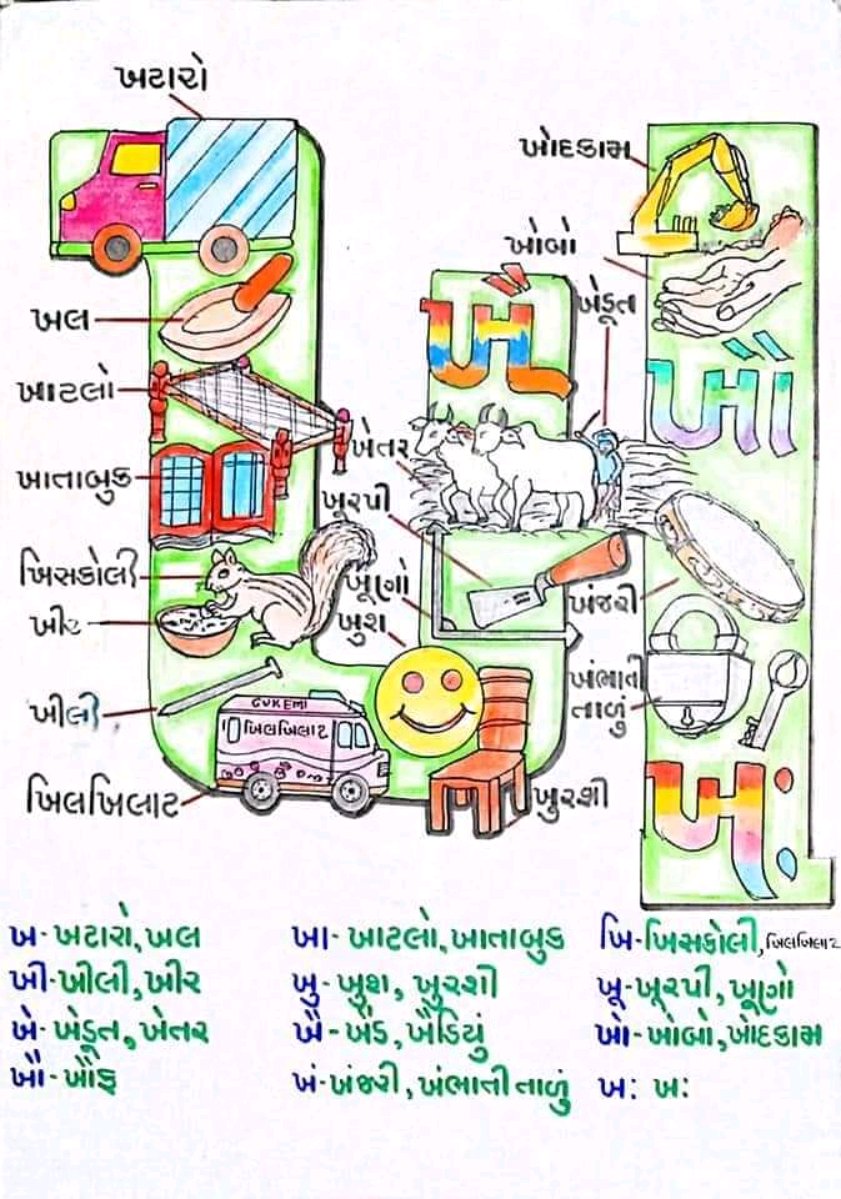 ખટારો
ખોદકામ
ખોબો
ખેડૂત
ખલ
ખૈ
ખાટલો
ખૌ
ખેતર
ખાતાબુક
ખૂરપી
ખિસકોલી
ખૂણો
ખંજરી
ખીર
ખુશ
ખીલી
ખંભાતી
તાળું
GVKEMI
ખિલખિલાટ
ખિલખિલાટ
ખુરશી
ખં:
ખ-ખટારો,ખલ
ખા-ખાટલો,ખાતાબુક
ખિ-ખિસકોલી,ખિલખિલાટ
ખી-ખીલી,ખીર
ખુ-ખુશ, ખુરશી
ખૂ-ખૂરપી, ખૂણો
ખે-ખેડૂત,ખેતર
ખૈ-ખૈડ,ખૈડિયું
ખો-ખોબો,ખોદકામ
ખૌ-ખૌફ
ખં-ખંજરી,ખંભાતી તાળું
ખ: ખ: